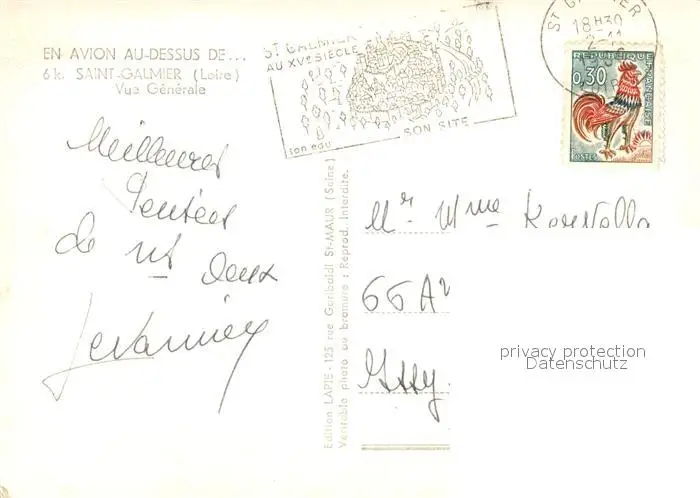 EN AVION AU-DESSUS DE...
6 k. SAINT-GALMIER (Loire)
Vue Générale
ST GALMIER
AU XVe SIÈCLE
son eau
SON SITE
ST GALMIER
18H30
2-11
REPUBLIQUE
FRANÇAISE
0,30
POSTES
Meilleures
Pensées
de nous deux
Edition LAPIE - 125 rue Garibaldi St-MAUR (Seine)
Véritable photo au bromure : Reprod. Interdite.
Mr Mme
66 A
Issy.
privacy protection
Datenschutz